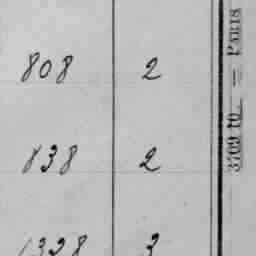 808 2
838 2
1328 3
3709 10. — PARIS